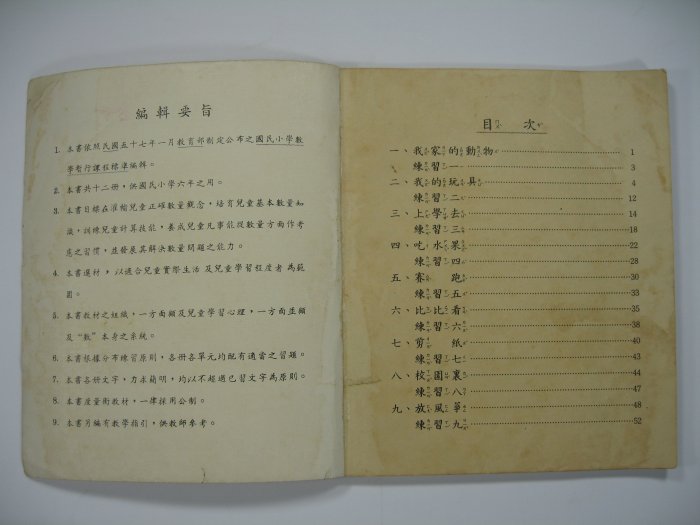 編輯要旨
1. 本書依照民國五十七年一月教育部制定公布之國民小學數
學暫行課程標準編輯。
2. 本書共十二册，供國民小學六年之用。
3. 本書目標在灌輸兒童正確數量觀念，培育兒童基本數量知
識，訓練兒童計算技能，養成兒童凡事能從數量方面作考
慮之習慣，並發展其解決數量問題之能力。
4. 本書選材，以適合兒童實際生活及兒童學習程度者為範
圍。
5. 本書教材之組織，一方面顧及兒童學習心理，一方面並顧
及“數”本身之系統。
6. 本書根據分布練習原則，各册各單元均配有適當之習題。
7. 本書各册文字，力求簡明，均以不超過已習文字為原則。
8. 本書度量衡教材，一律採用公制。
9. 本書另編有教學指引，供教師參考。
目 次
一、我家的動物 1
練習一 3
二、我的玩具 4
練習二 12
三、上學去 14
練習三 18
四、吃水果 22
練習四 28
五、賽跑 30
練習五 33
六、比比看 35
練習六 38
七、剪紙 40
練習七 43
八、校園裏 44
練習八 47
九、放風箏 48
練習九 52